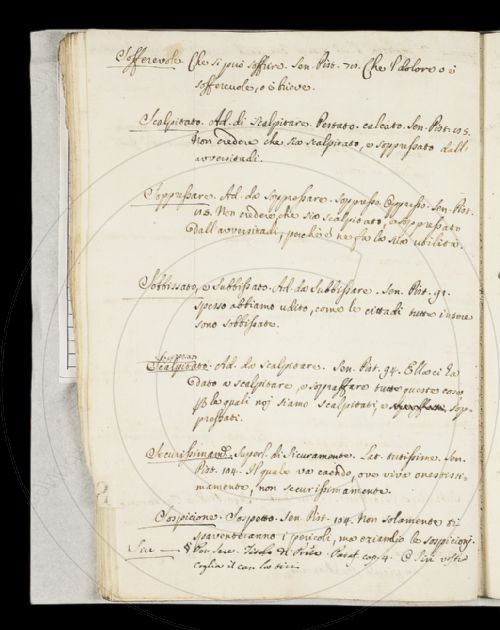 Sofferevole. Che si può soffrire. Sen. Pist. 70. Che 'l dolore o è
sofferevole, o è brieve.
Scalpitato. Ad. di Scalpitare. Pestato. calcato. Sen. Pist. 105.
Non credere che sia scalpitato, e soppressato dall'
avversitadi.
Soppressare. Ad. da Soppressare. Soppresso. Oppresso. Sen. Pist.
Non credere, che sia scalpitato, e soppressato
dall'avversitadi, perch'è ne fa la sua utilità.
Sobbissato, e Subbissato. Ad. da Subbissare. Sen. Pist. 91.
spesso abbiamo udito, come le cittadi tutte intere
sono sobbissate.
Scalpitato. Ad. da Scalpitare. Sen. Pist. 94. Ella ci ha
dato a scalpitare, e soprastare tutte queste cose
le quali noi siamo scalpitati, e sop-
pressati.
Securissimam. Superl. di Sicuramente. Lat. tutissime. Sen.
Pist. 104. Il quale va caendo, ove viva onestissi-
mamente, non securissimamente.
Sospicione. Sospetto. Sen. Pist. 104. Non solamente ti
spaventeranno i pericoli, ma eziandio le sospicioni.
cap. 4.
coglia il can la